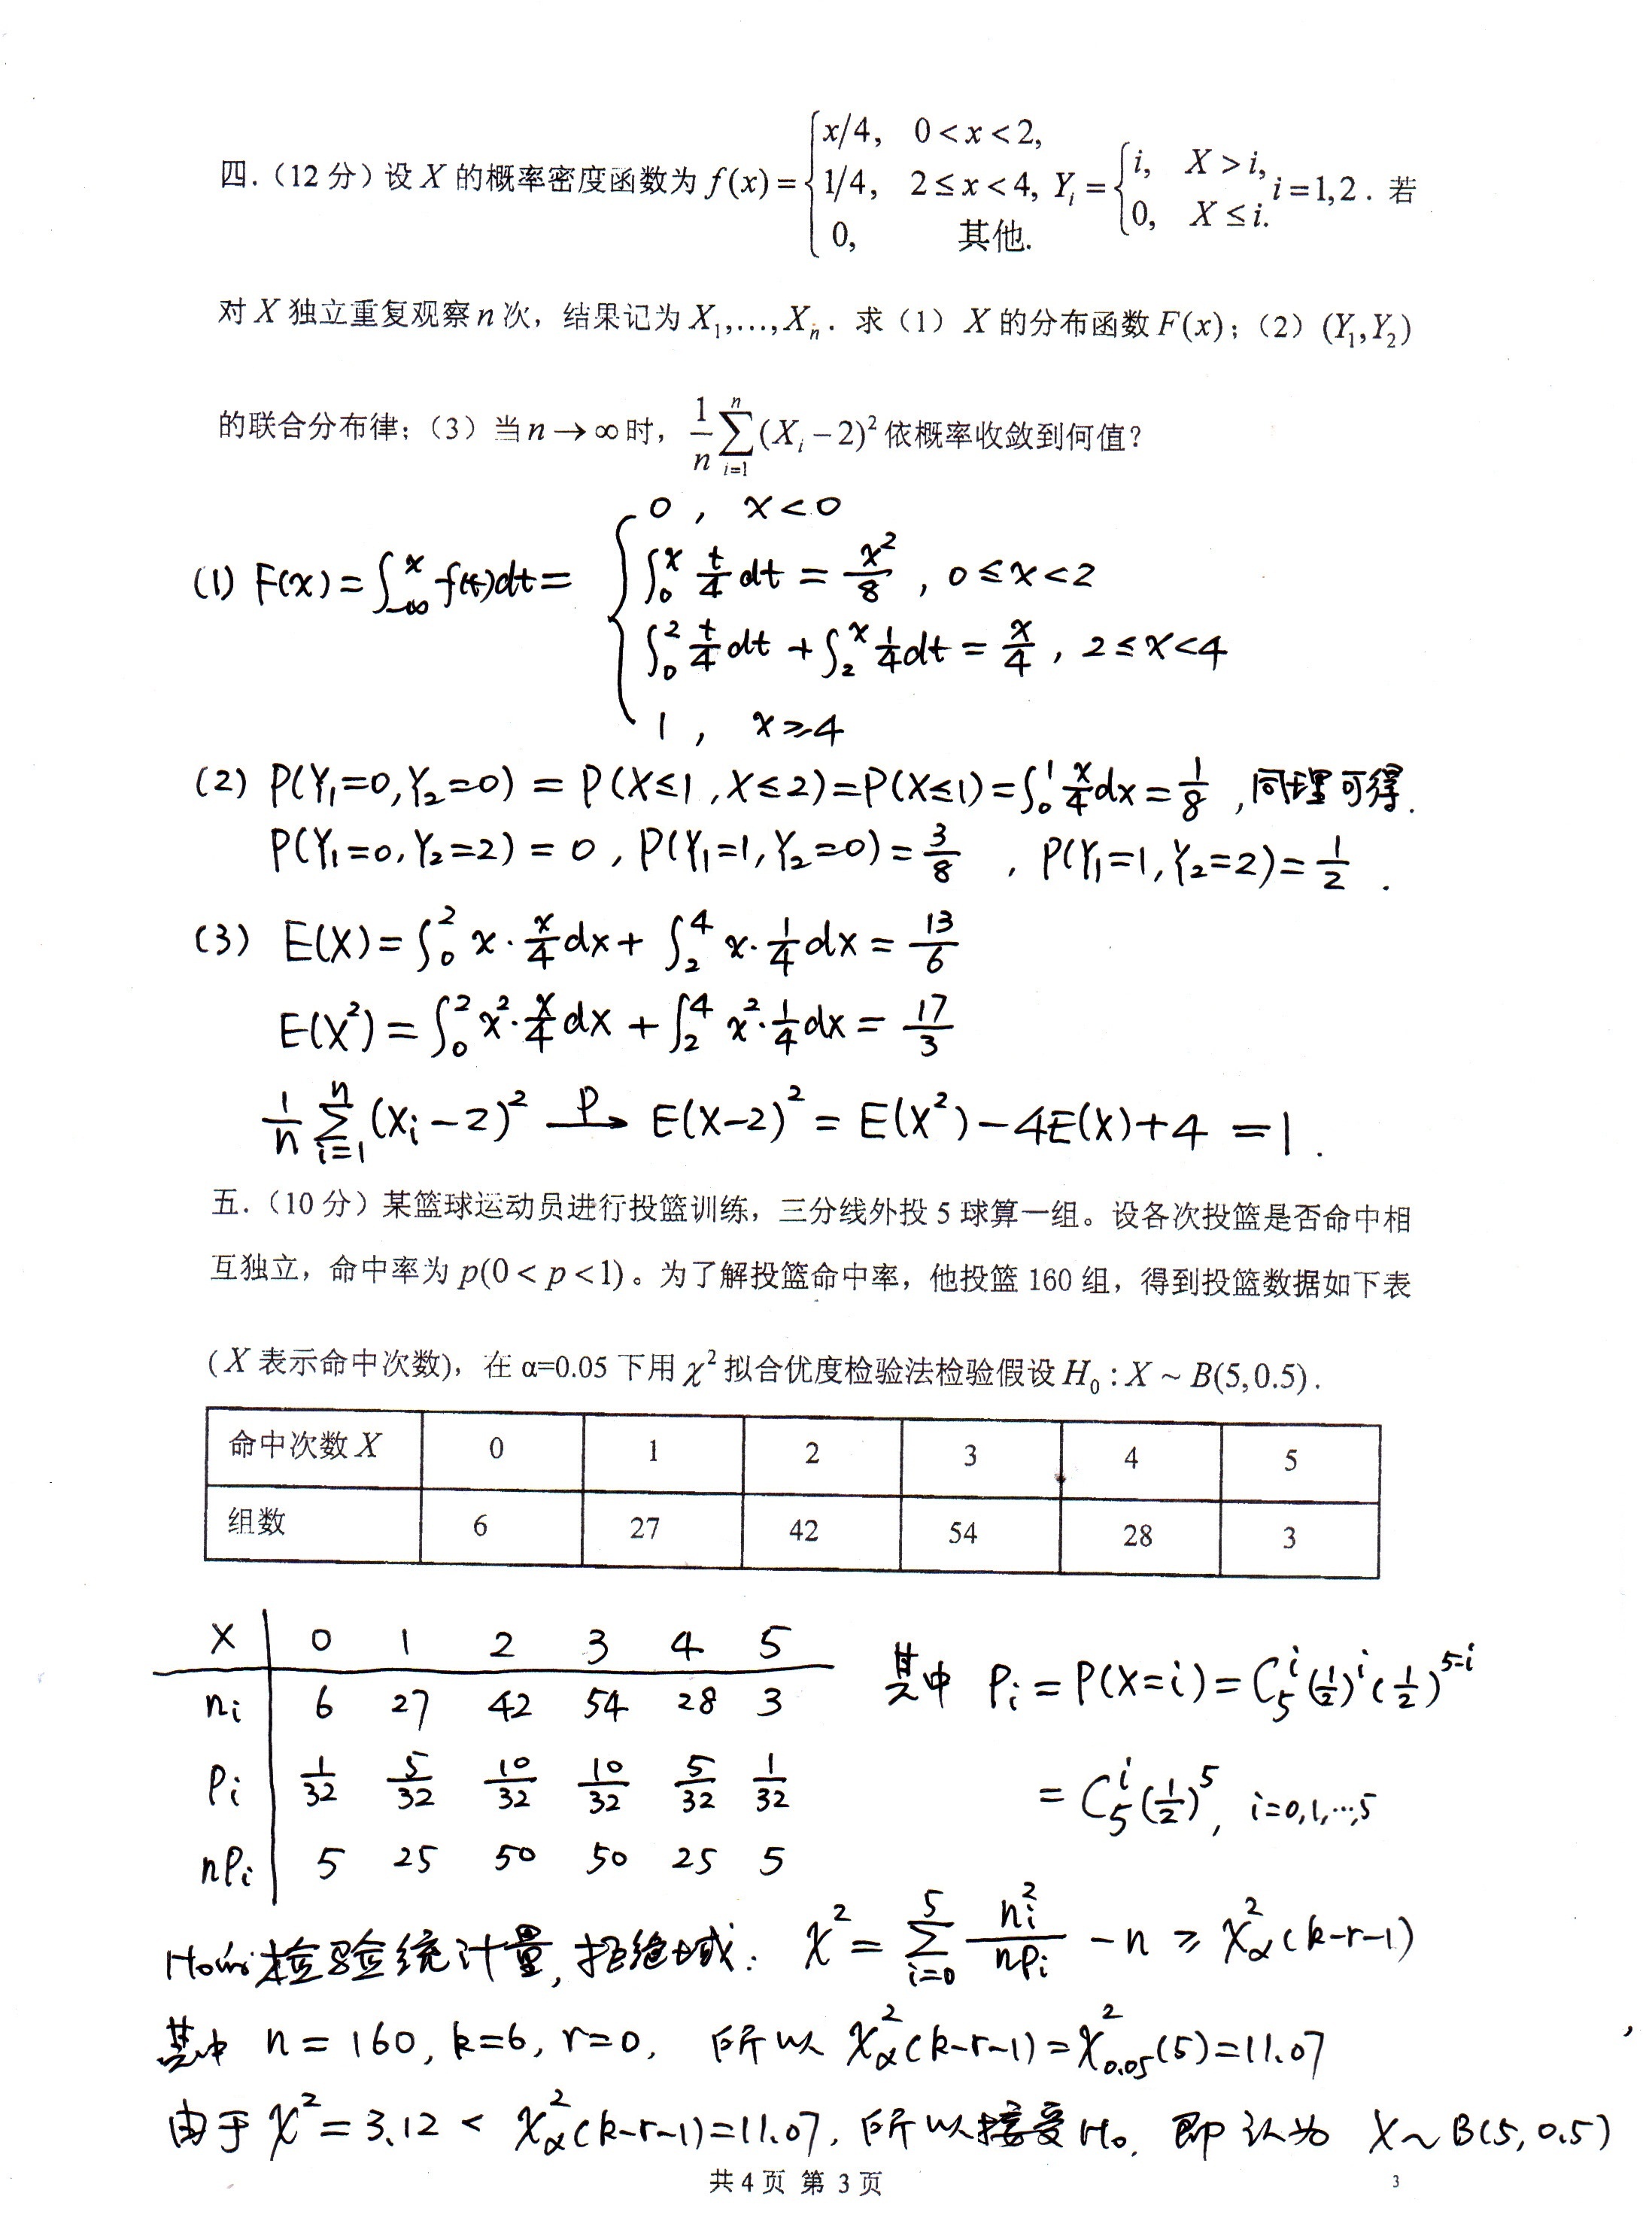 四.（12 分）设 X 的概率密度函数为 f(x) = { x/4, 0 < x < 2, 1/4, 2 ≤ x < 4, 0, 其他. Y_i = { i, X > i, 0, X ≤ i. i = 1,2 . 若
对 X 独立重复观察 n 次，结果记为 X_1,…,X_n . 求（1）X 的分布函数 F(x)；（2）(Y_1,Y_2)
的联合分布律；（3）当 n → ∞ 时， 1/n ∑_{i=1}^{n} (X_i − 2)^2 依概率收敛到何值？
(1) F(x) = ∫_{-∞}^{x} f(t)dt = { 0 , x<0
∫_0^x t/4 dt = x^2/8 , 0≤x<2
∫_0^2 t/4 dt + ∫_2^x 1/4 dt = x/4 , 2≤x<4
1 , x≥4
(2) P(Y_1=0,Y_2=0) = P(X≤1,X≤2)=P(X≤1)=∫_0^1 x/4 dx = 1/8 ,同理可得.
P(Y_1=0,Y_2=2) = 0 , P(Y_1=1,Y_2=0) = 3/8 , P(Y_1=1,Y_2=2) = 1/2 .
(3) E(X) = ∫_0^2 x·x/4 dx + ∫_2^4 x·1/4 dx = 13/6
E(X^2) = ∫_0^2 x^2·x/4 dx + ∫_2^4 x^2·1/4 dx = 17/3
1/n ∑_{i=1}^{n} (X_i−2)^2 →^P E(X−2)^2 = E(X^2) − 4E(X)+4 = 1 .
五.（10 分）某篮球运动员进行投篮训练，三分线外投 5 球算一组。设各次投篮是否命中相
互独立，命中率为 p(0 < p < 1)。为了解投篮命中率，他投篮 160 组，得到投篮数据如下表
(X 表示命中次数)，在 α=0.05 下用 χ^2 拟合优度检验法检验假设 H_0 : X ~ B(5,0.5) .
命中次数 X 0 1 2 3 4 5
组数 6 27 42 54 28 3
X 0 1 2 3 4 5
n_i 6 27 42 54 28 3
p_i 1/32 5/32 10/32 10/32 5/32 1/32
np_i 5 25 50 50 25 5
其中 P_i = P(X=i) = C_5^i (1/2)^i (1/2)^{5-i}
= C_5^i (1/2)^5 , i=0,1,…,5
H_0的检验统计量,拒绝域: χ^2 = ∑_{i=0}^{5} n_i^2/np_i − n ≥ χ_α^2(k-r-1)
其中 n = 160, k=6, r=0, 所以 χ_α^2(k-r-1) = χ_{0.05}^2(5) = 11.07
由于 χ^2 = 3.12 < χ_α^2(k-r-1) = 11.07, 所以接受 H_0, 即认为 X ~ B(5, 0.5)
共 4 页 第 3 页
3